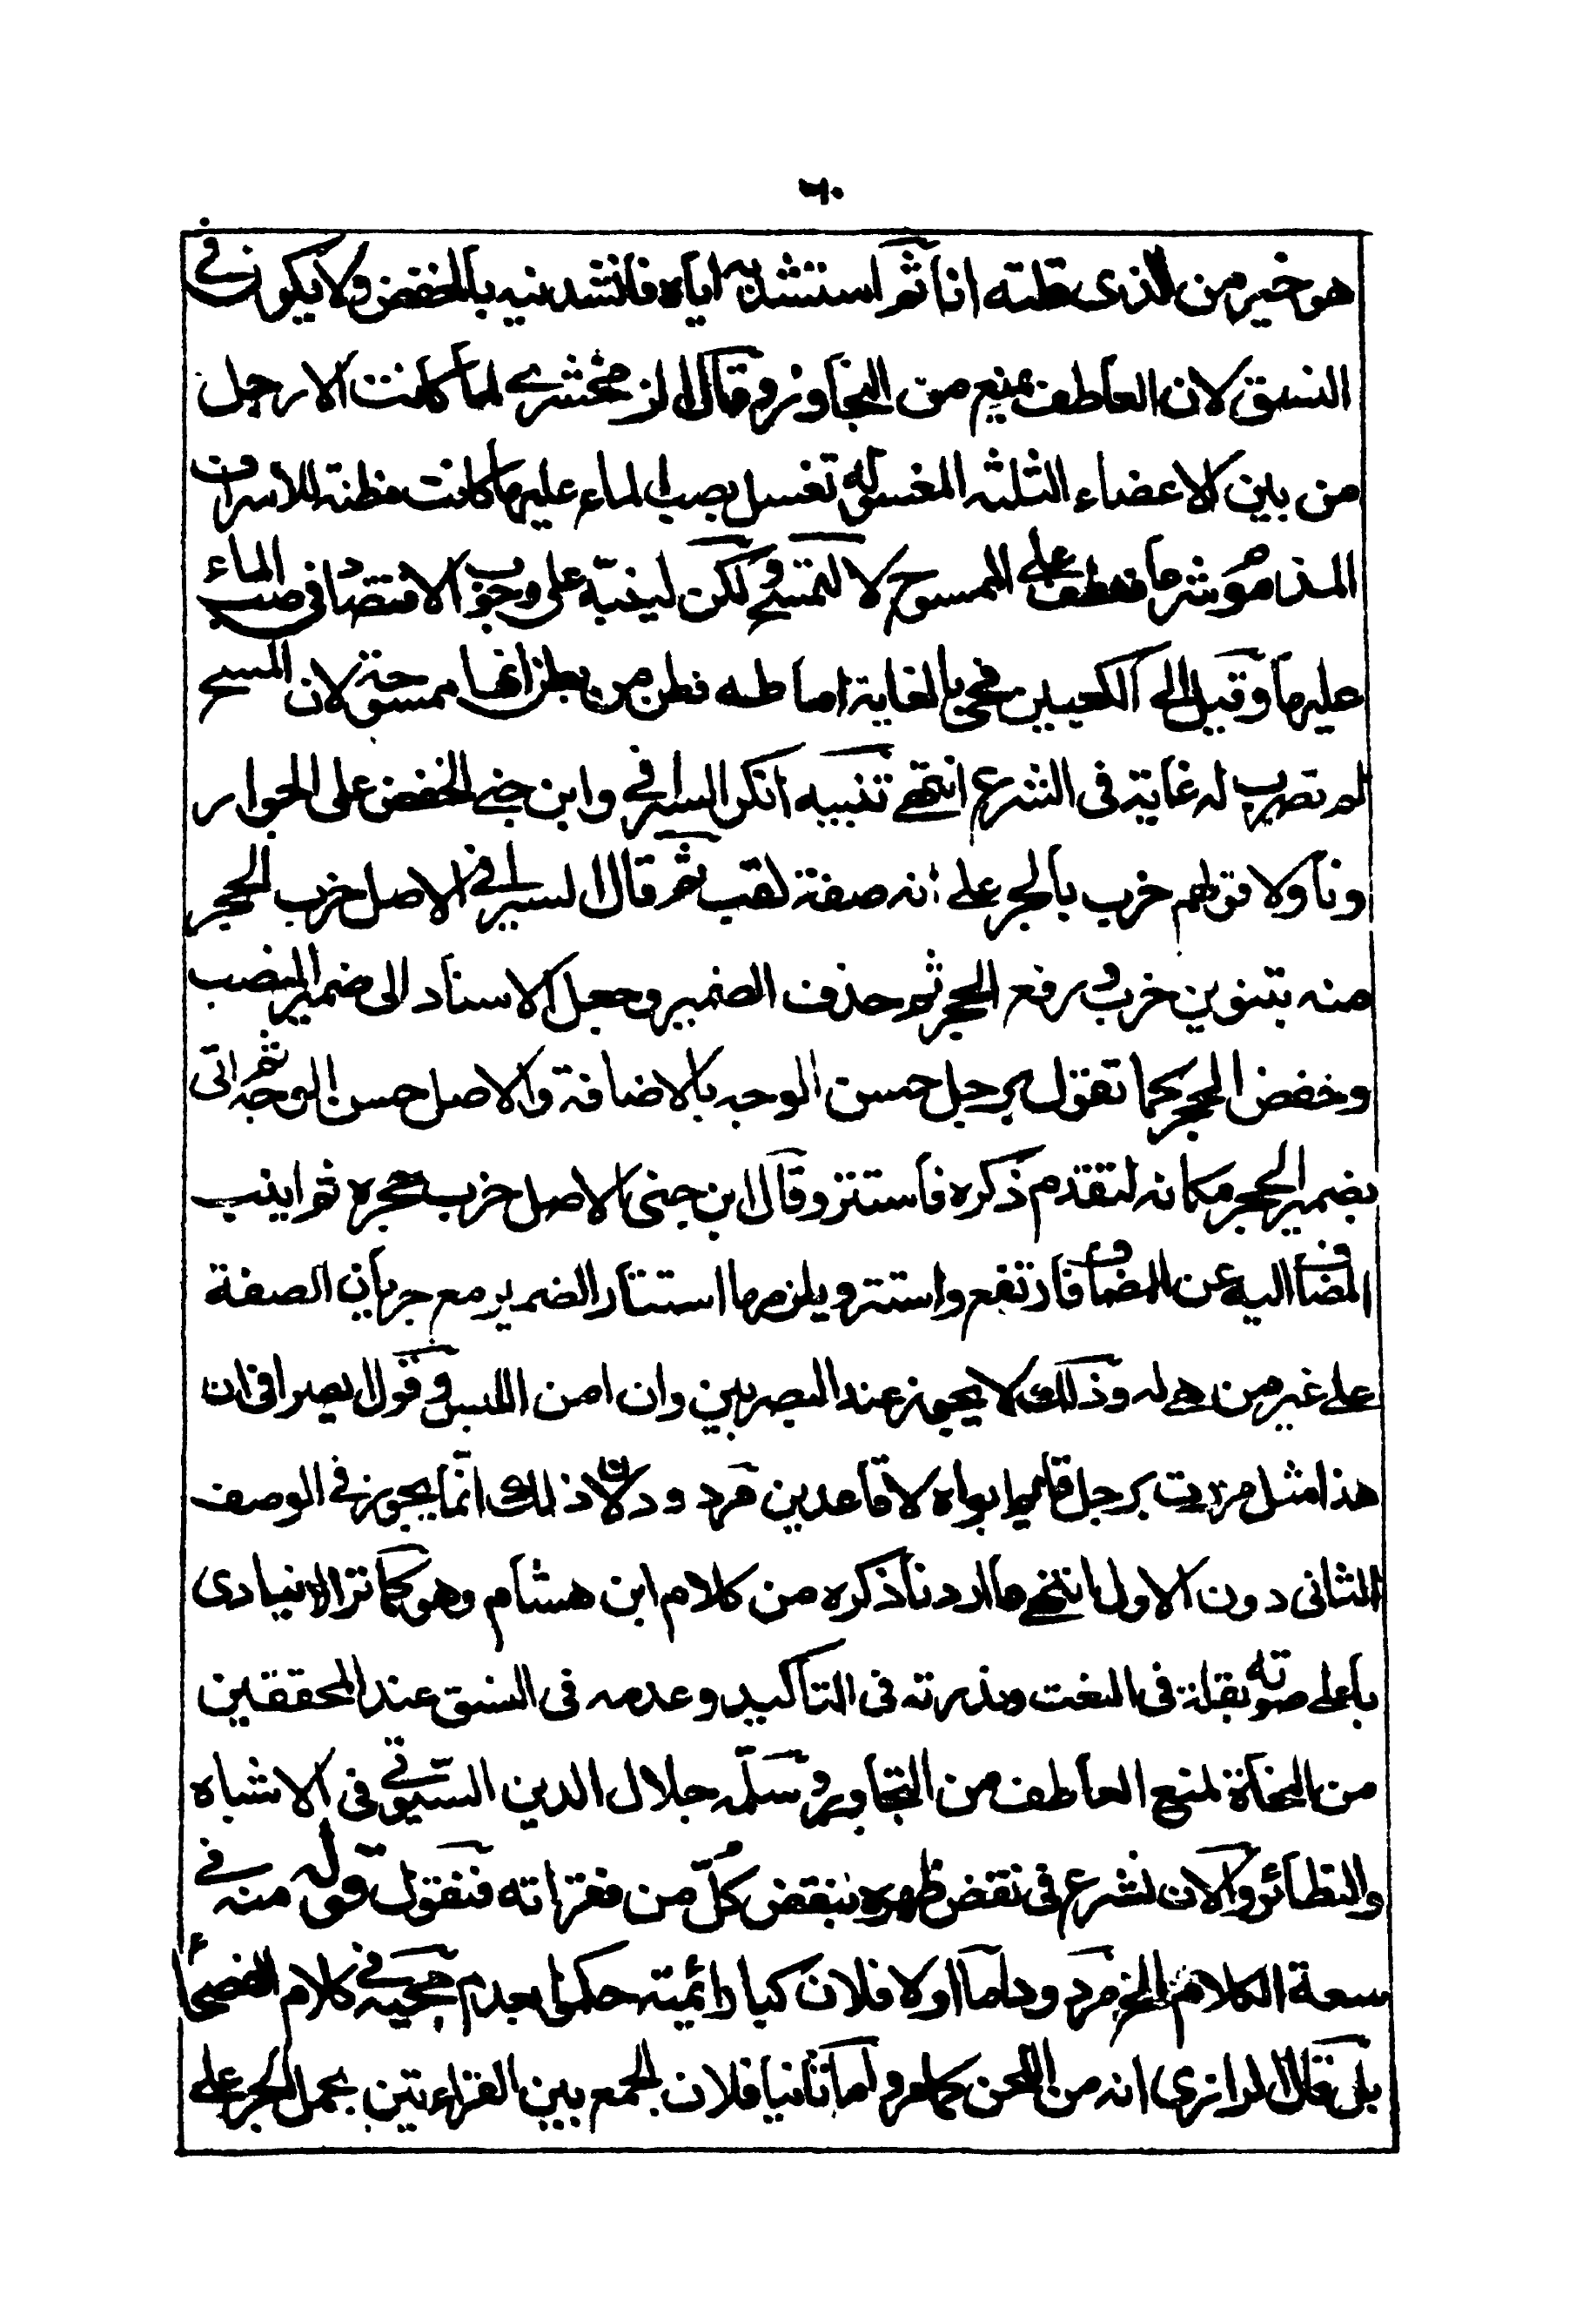 ٦٠
هو خير من الذي قلته انا ثم استنشدته اياه فانشدنيه بالخفض ولا يكون في
النسق لان العاطف يمنع من التجاوز وقال الزمخشري لما كانت الارجل
من بين الاعضاء الثلثة المغسولة تغسل بصب الماء عليها كانت مظنة للاسراف
المذموم شرعا فعطف على الممسوح لا لتمسح ولكن لينبه على وجوب الاقتصاد في صب الماء
عليها وقيل الى الكعبين فجئ بالغاية اماطة لظن من يظن انها ممسوحة لان المسح
لم تضرب له غاية في الشرع انتهى تنبيه انكر السيرافي وابن جني الخفض على الجوار
وتاولا قولهم خرب بالجر على انه صفة لضب ثم قال السيرافي الاصل خرب الجحر
منه بتنوين خرب ورفع الجحر ثم حذف الضمير وجعل الاسناد الى ضمير الضب
وخفض الجحر كما تقول برجل حسن الوجه بالاضافة والاصل حسن الوجه ثم اتى
بضمير الجحر مكانه لتقدم ذكره فاستتر وقال ابن جني الاصل خرب جحره ثم انيب
المضاف اليه عن المضاف فارتفع واستتر ويلزمها استتار الضمير مع جريان الصفة
على غير من هي له وذلك لا يجوز عند البصريين وان امن اللبس وقول السيرافي ان
هذا مثل مررت برجل قائم ابواه لا قاعدين مردود لان ذلك انما يجوز في الوصف
الثاني دون الاول انتهى ما اردنا ذكره من كلام ابن هشام وهو كما تراه ينادي
باعلى صوته بقلة في النعت وندرته في التاكيد وعدمه في النسق عند المحققين
من النحاة لمنع العاطف من التجاوز وسلمه جلال الدين السيوطي في الاشباه
والنظائر والان نشرع في نقض ظهره بنقض كل من فقراته فنقول قوله منه في
سعة الكلام الخ مردود اما اولا فلان كبار ائمته حكموا بعدم مجيئه في كلام الفصحاء
بل قال الرازي انه من اللحن كما مر واما ثانيا فلان الجمع بين القراءتين بحمل الجر على